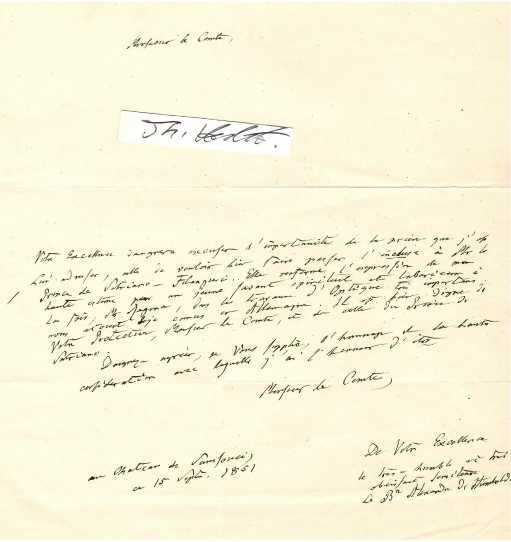 Monsieur le Comte,
Votre Excellence daignera excuser l'importunité de la prière que j'ose
Lui adresser, celle de vouloir bien faire passer l'incluse à Mr le
Prince de Satriano-Filangieri. Elle renferme l'expression de ma
haute estime pour un jeune savant spirituel et laborieux à
la fois, Mr Ragona, dont les travaux d'Optique
nous sont déjà connus en Allemagne. Il est digne de
Votre Protection, Monsieur le Comte, et de celle du Prince de
Satriano.
Daignez agréer, je Vous supplie, l'hommage de la haute
considération avec laquelle j'ai l'honneur d'être
Monsieur le Comte,
De Votre Excellence
au Château de Sanssouci,
ce 15 Sept. 1851
le très-humble et très
obéissant serviteur
Le Bn Alexandre de Humboldt